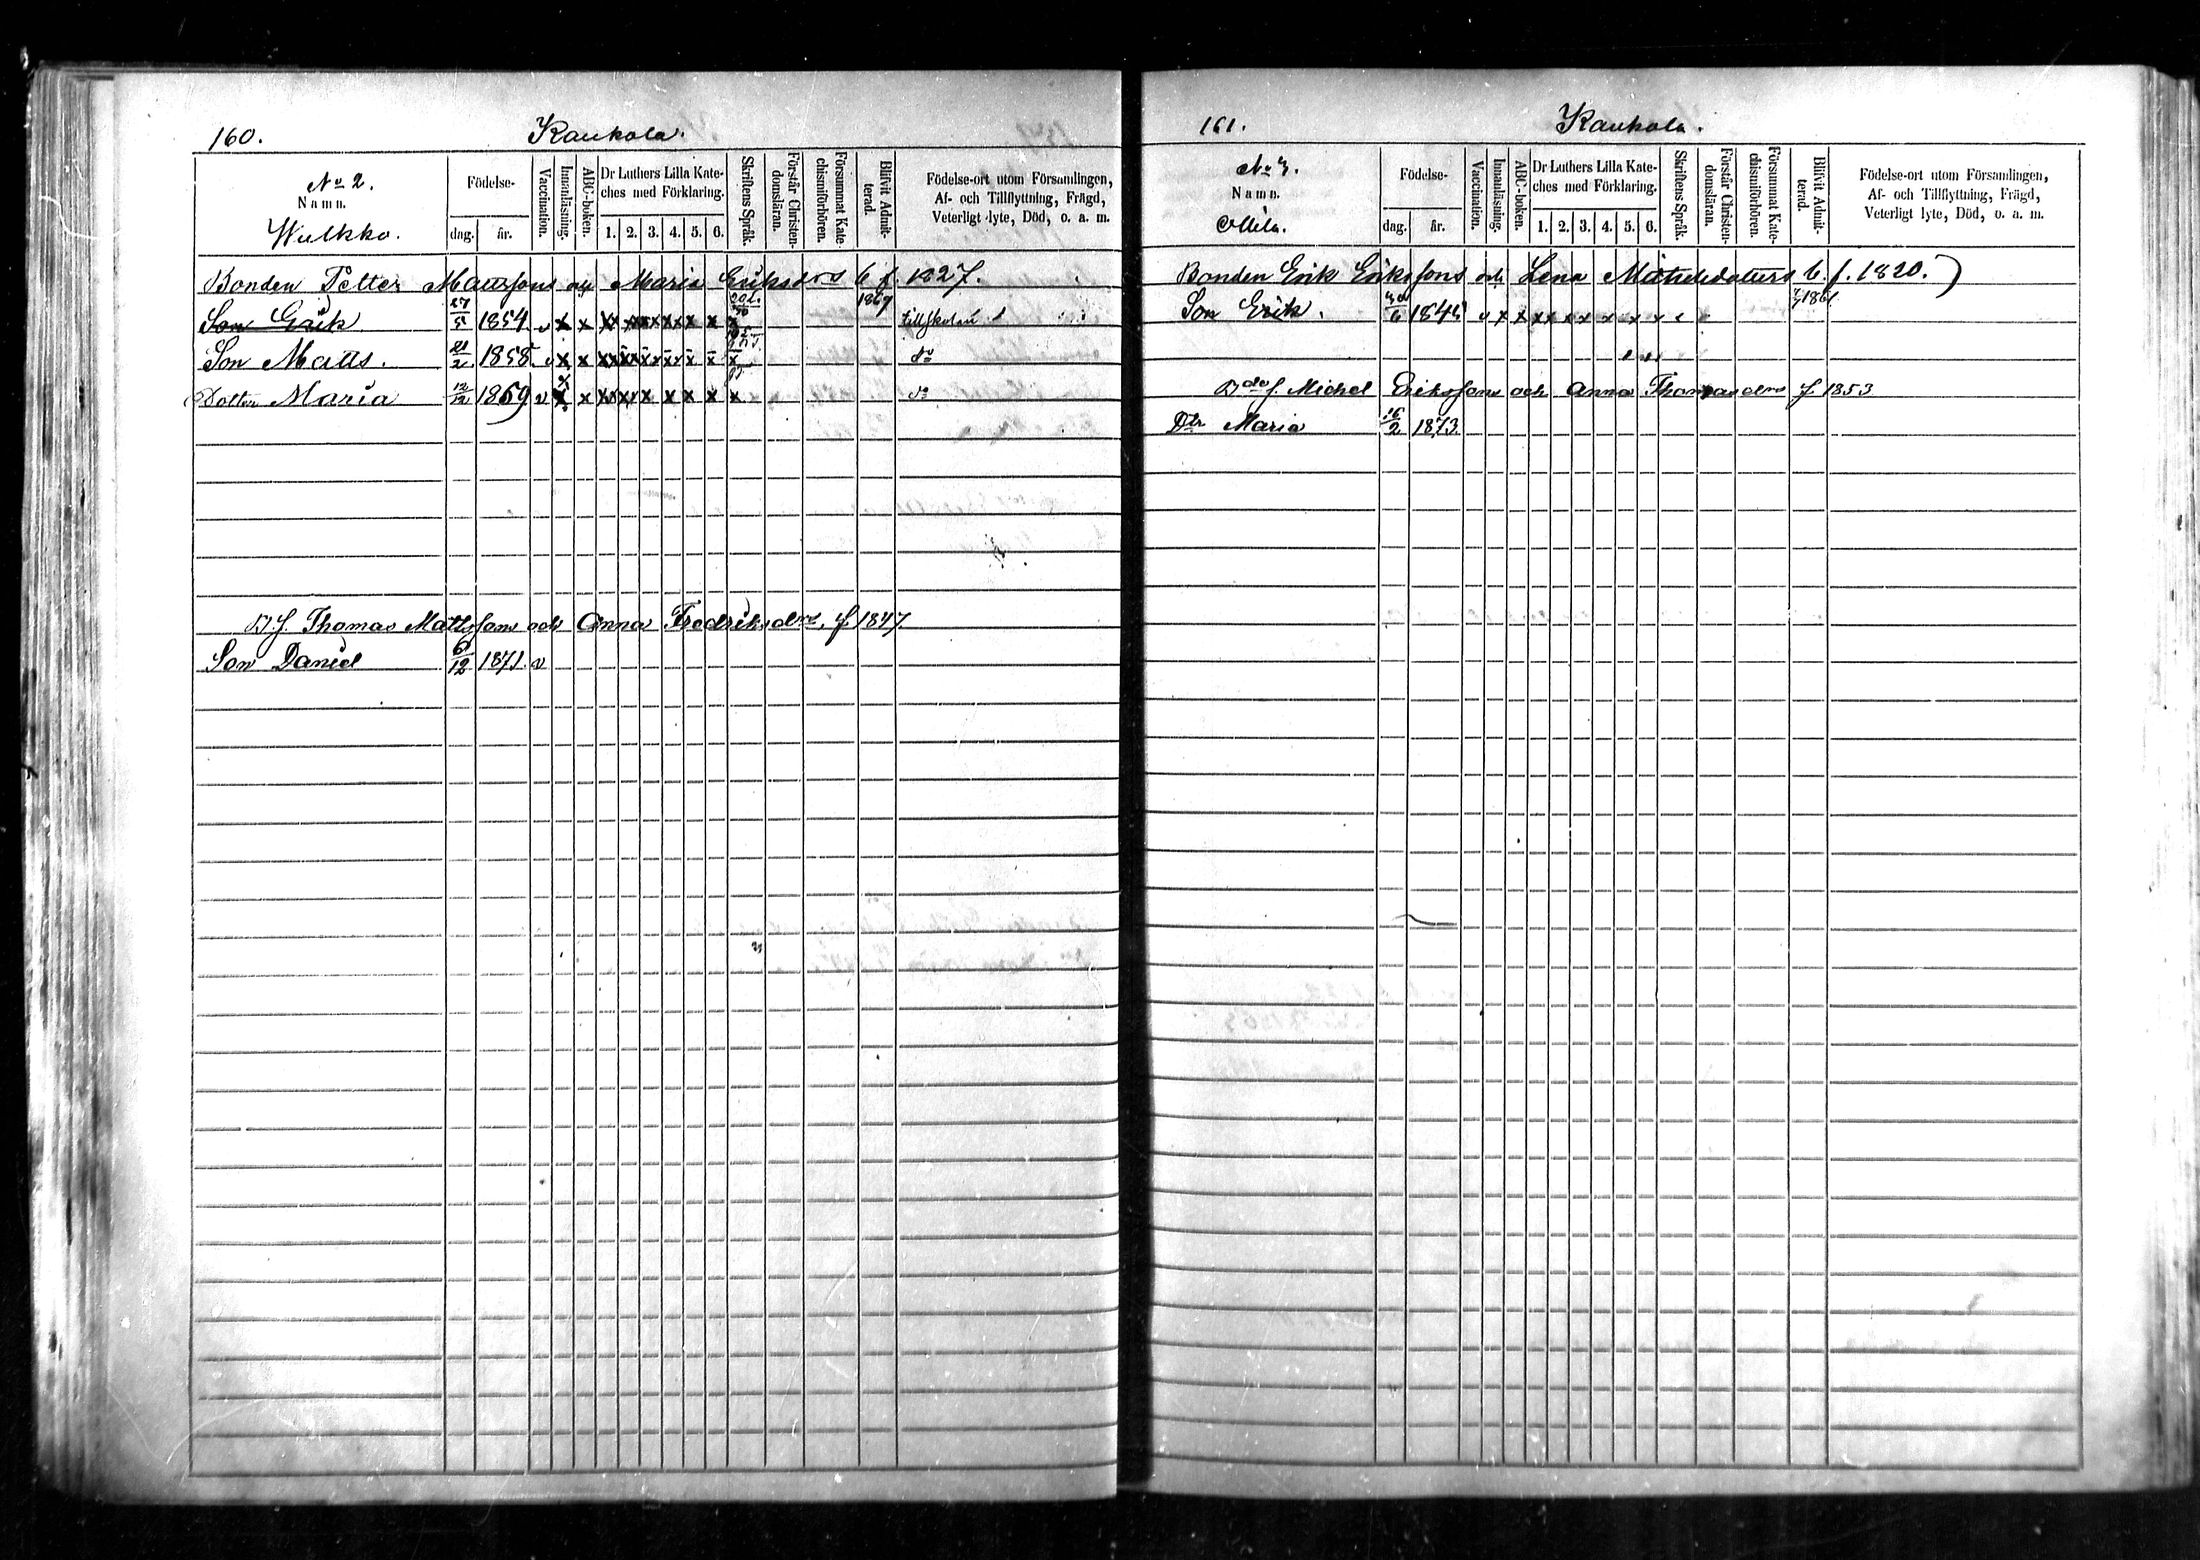 160. Kaukola.
No 2.
Namn.
Wulkko.
Födelse-
dag. år.
Vaccination.
Innanläsning.
ABC-boken.
Dr Luthers Lilla Kate-
ches med Förklaring.
1. 2. 3. 4. 5. 6.
Skriftens Språk.
Förstår Christen-
domsläran.
Försummat Kate-
chismiförhören.
Blifvit Admit-
terad.
Födelse-ort utom Församlingen,
Af- och Tillflyttning, Frägd,
Veterligt lyte, Död, o. a. m.
Bonden Petter Mattssons och Maria Eriksdrs b f. 1827.
Son Erik 27/5 1854 v x x x x x x x x x 1867 Till skolan
Son Matts. 21/2 1858 v x x x x x x x x x do
Dotter Maria 12/12 1859 v x x x x x x x x x do
Thomas Mattssons och Anna Fredriksdrs, f 1847.
Son Daniel 6/12 1871. v
161. Kaukola.
No 3.
Namn.
Födelse-
dag. år.
Vaccination.
Innanläsning.
ABC-boken.
Dr Luthers Lilla Kate-
ches med Förklaring.
1. 2. 3. 4. 5. 6.
Skriftens Språk.
Förstår Christen-
domsläran.
Försummat Kate-
chismiförhören.
Blifvit Admit-
terad.
Födelse-ort utom Församlingen,
Af- och Tillflyttning, Frägd,
Veterligt lyte, Död, o. a. m.
Bonden Erik Erikssons och Lena b. f. 1820.
Son Erik. v x x x x x x x x
Michel Erikssons och Anna Thomasdrs f 1853
Dtr Maria 16/2 1873.